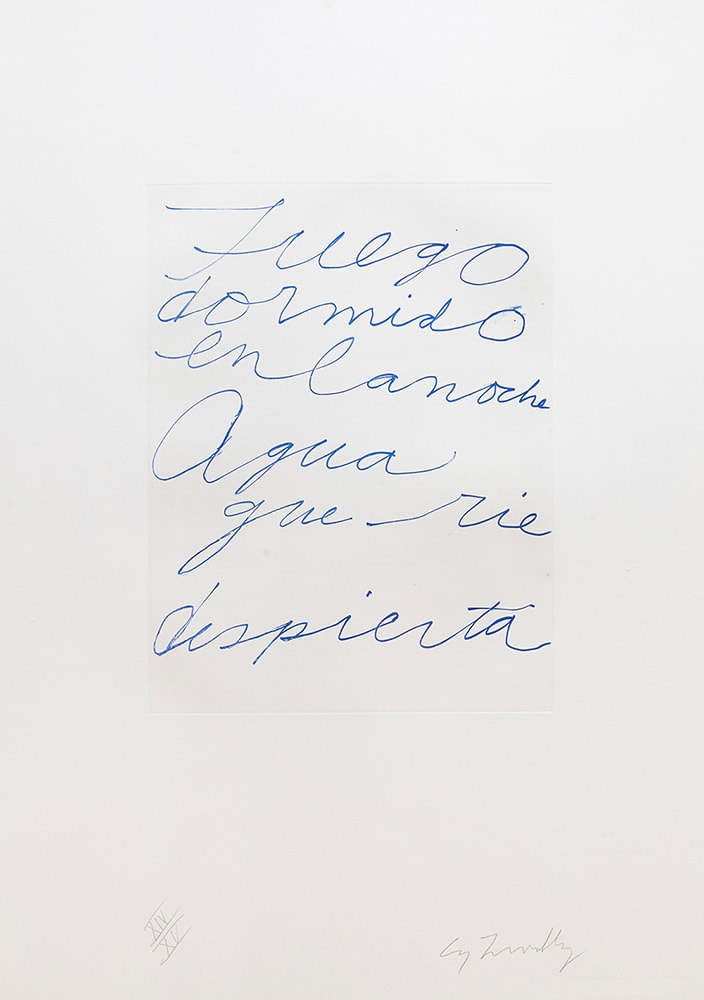 Fuego
dormido
en la noche
Agua
que rie
despierta
XIV/XV Cy Twombly